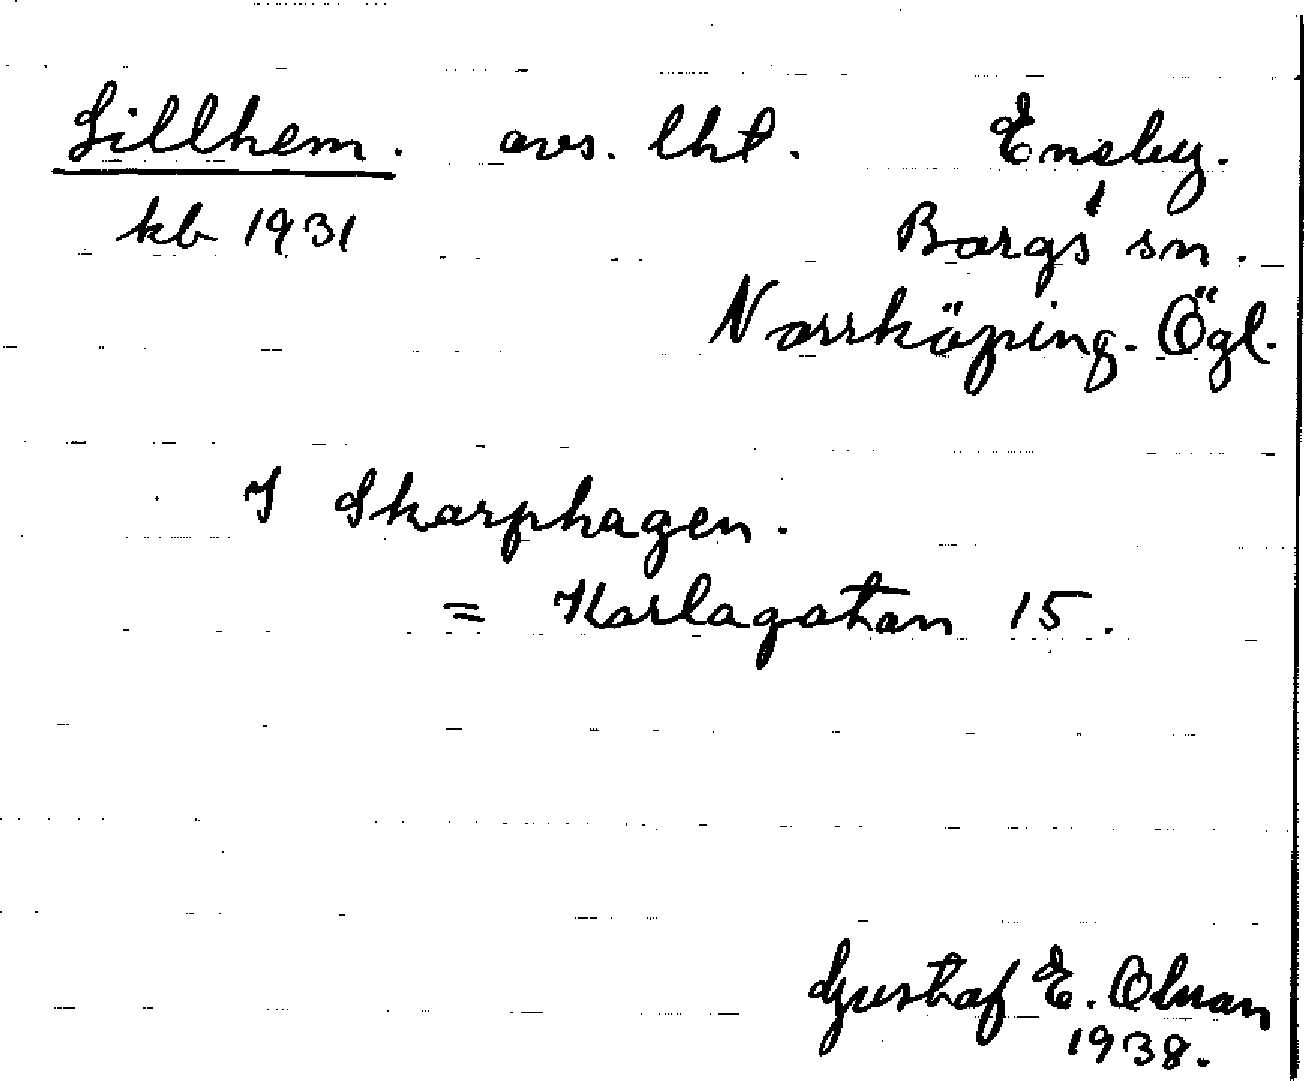 Lillhem. avs. lht. Eneby.
kb 1931 Borgs sn.
Norrköping. Ögl.
I Skarphagen.
= Karlagatan 15.
Gustaf E. Olman
1938.